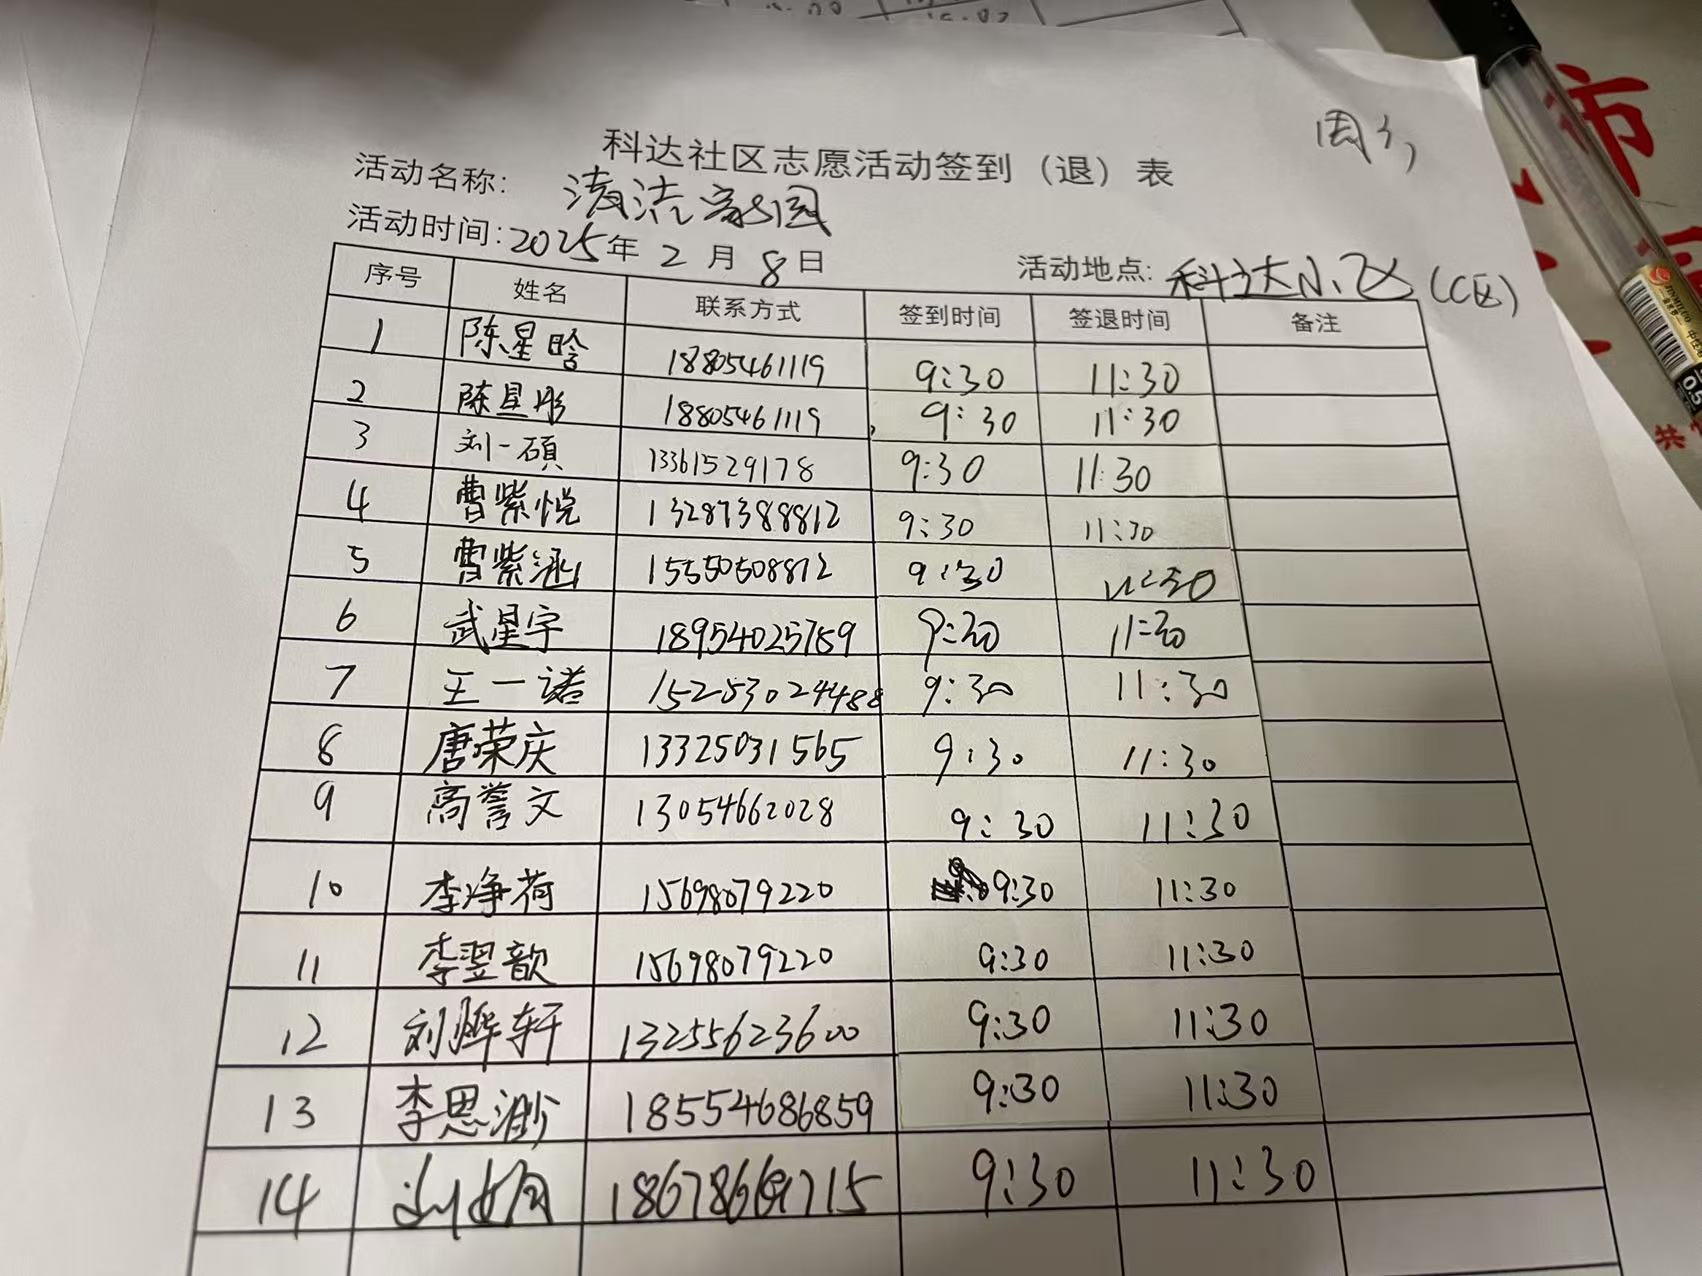 科达社区志愿活动签到（退）表
活动名称: 清洁家园
活动时间:2025年 2 月 8 日
活动地点: 科达小区(C区)
序号 姓名 联系方式 签到时间 签退时间 备注
1 陈星晗 18805461119 9:30 11:30
2 陈星彤 18805461119 9:30 11:30
3 刘一硕 13361529178 9:30 11:30
4 曹紫悦 13287388812 9:30 11:30
5 曹紫涵 15550508812 9:30 11:30
6 武星宇 18954025759 9:30 11:30
7 王一诺 15253024488 9:30 11:30
8 唐荣庆 13325031565 9:30 11:30
9 高誉文 13054662028 9:30 11:30
10 李净荷 15698079220 9:30 11:30
11 李翌歆 15698079220 9:30 11:30
12 刘烨轩 13255623600 9:30 11:30
13 李思渺 18554686859 9:30 11:30
14 9:30 11:30
市
0.5